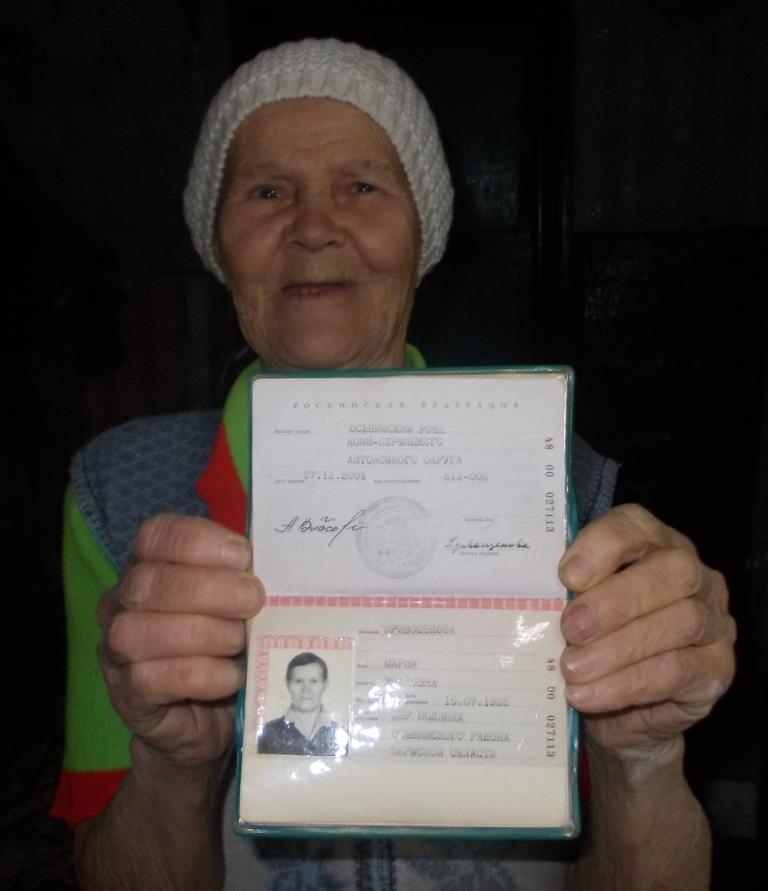 РОССИЙСКАЯ ФЕДЕРАЦИЯ
Паспорт выдан ЮСЬВИНСКИМ РОВД
КОМИ-ПЕРМЯЦКОГО
АВТОНОМНОГО ОКРУГА
Дата выдачи 27.12.2001 Код подразделения 812-006
48 00 027113
Личный код
Личная подпись
Фамилия КРИВОЩЕКОВА
Имя МАРИЯ
ДЕР.
ЮСЬВИНСКОГО РАЙОНА
ПЕРМСКОЙ ОБЛАСТИ
48 00 027113